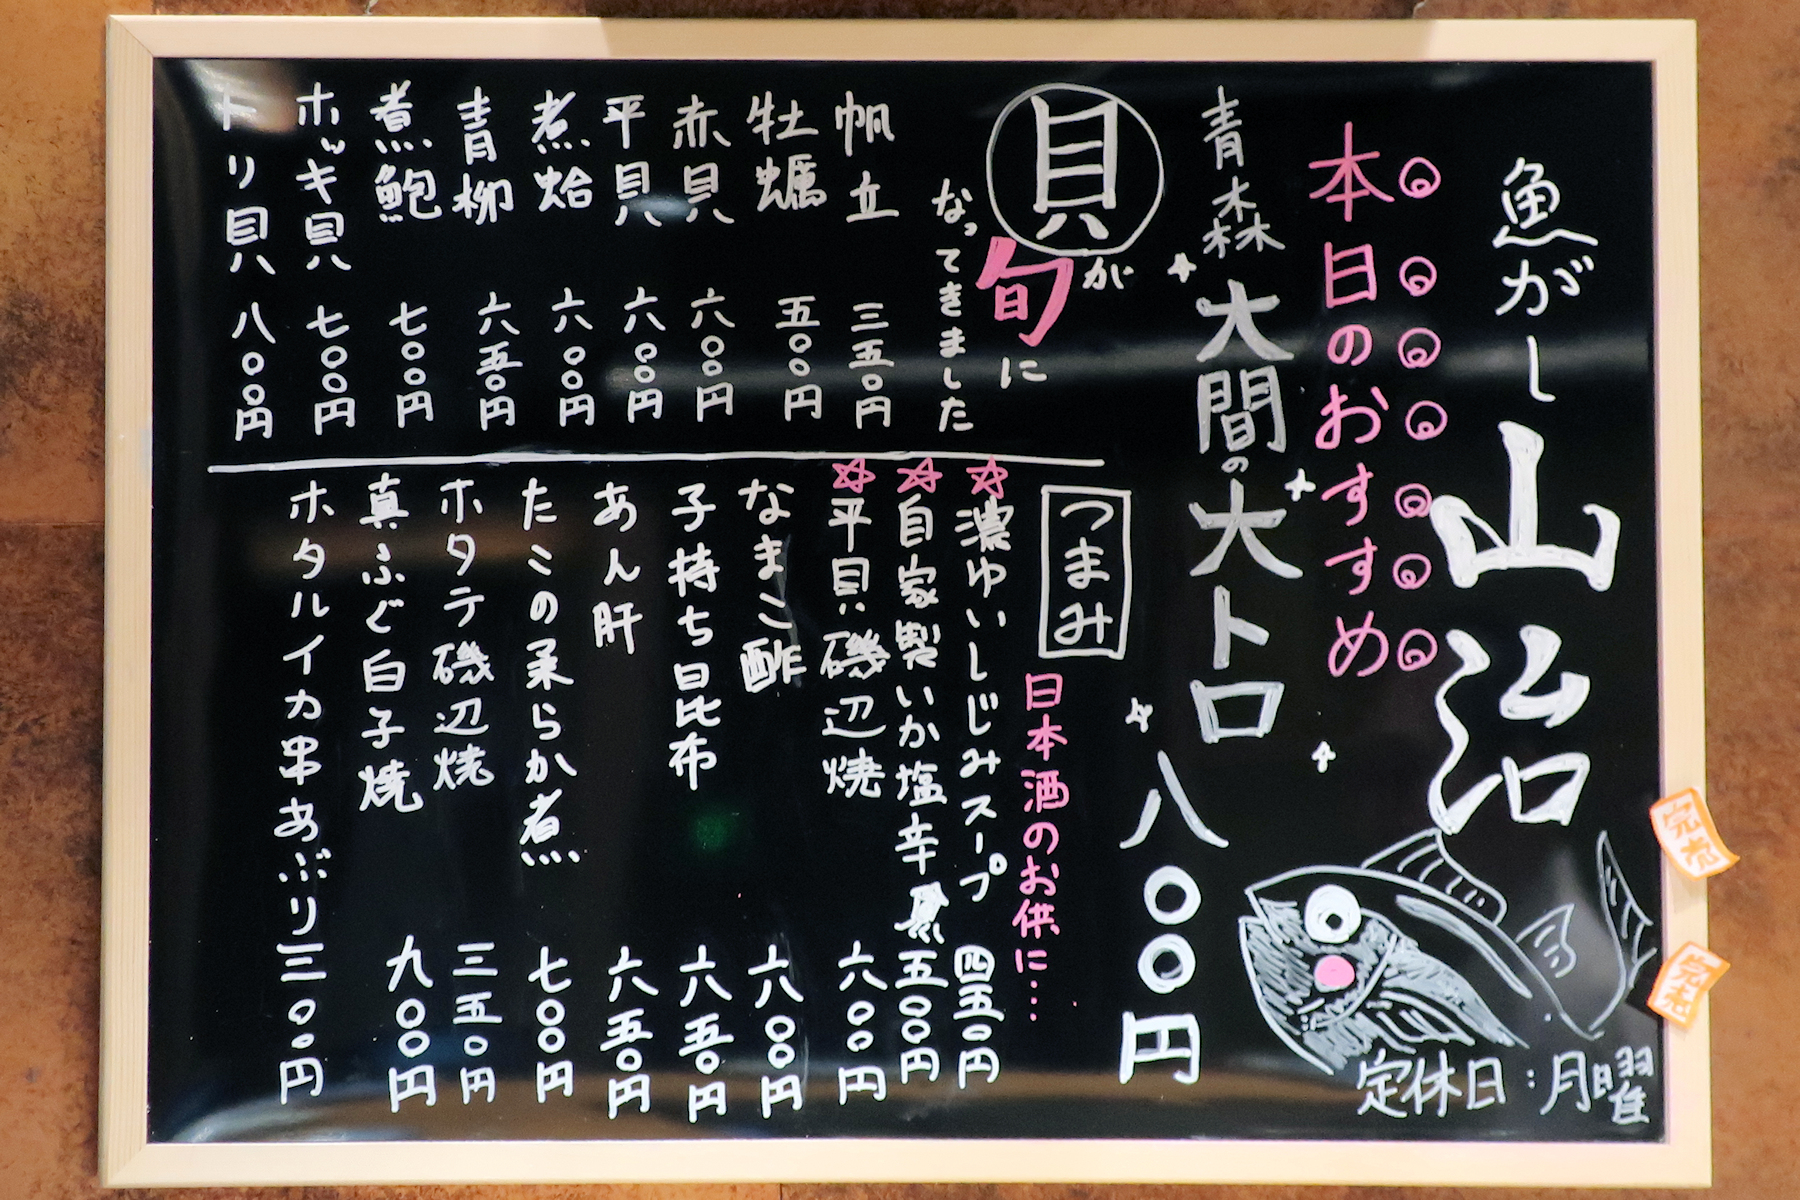 魚がし 山治
本日のおすすめ
青森 大間の大トロ 八〇〇円
貝が
旬に
なってきました
帆立 三五〇円
牡蠣 五〇〇円
赤貝 六〇〇円
平貝 六〇〇円
煮蛤 六〇〇円
青柳 六五〇円
煮鮑 七〇〇円
ホッキ貝 七〇〇円
トリ貝 八〇〇円
つまみ
日本酒のお供に…
☆濃ゆいしじみスープ 四五〇円
☆自家製いか塩辛 五〇〇円
☆平貝磯辺焼 六〇〇円
なまこ酢 六〇〇円
子持ち昆布 六五〇円
あん肝 六五〇円
たこの柔らか煮 七〇〇円
ホタテ磯辺焼 三五〇円
真ふぐ白子焼 九〇〇円
ホタルイカ串あぶり 三〇〇円
定休日：月曜
完売
完売